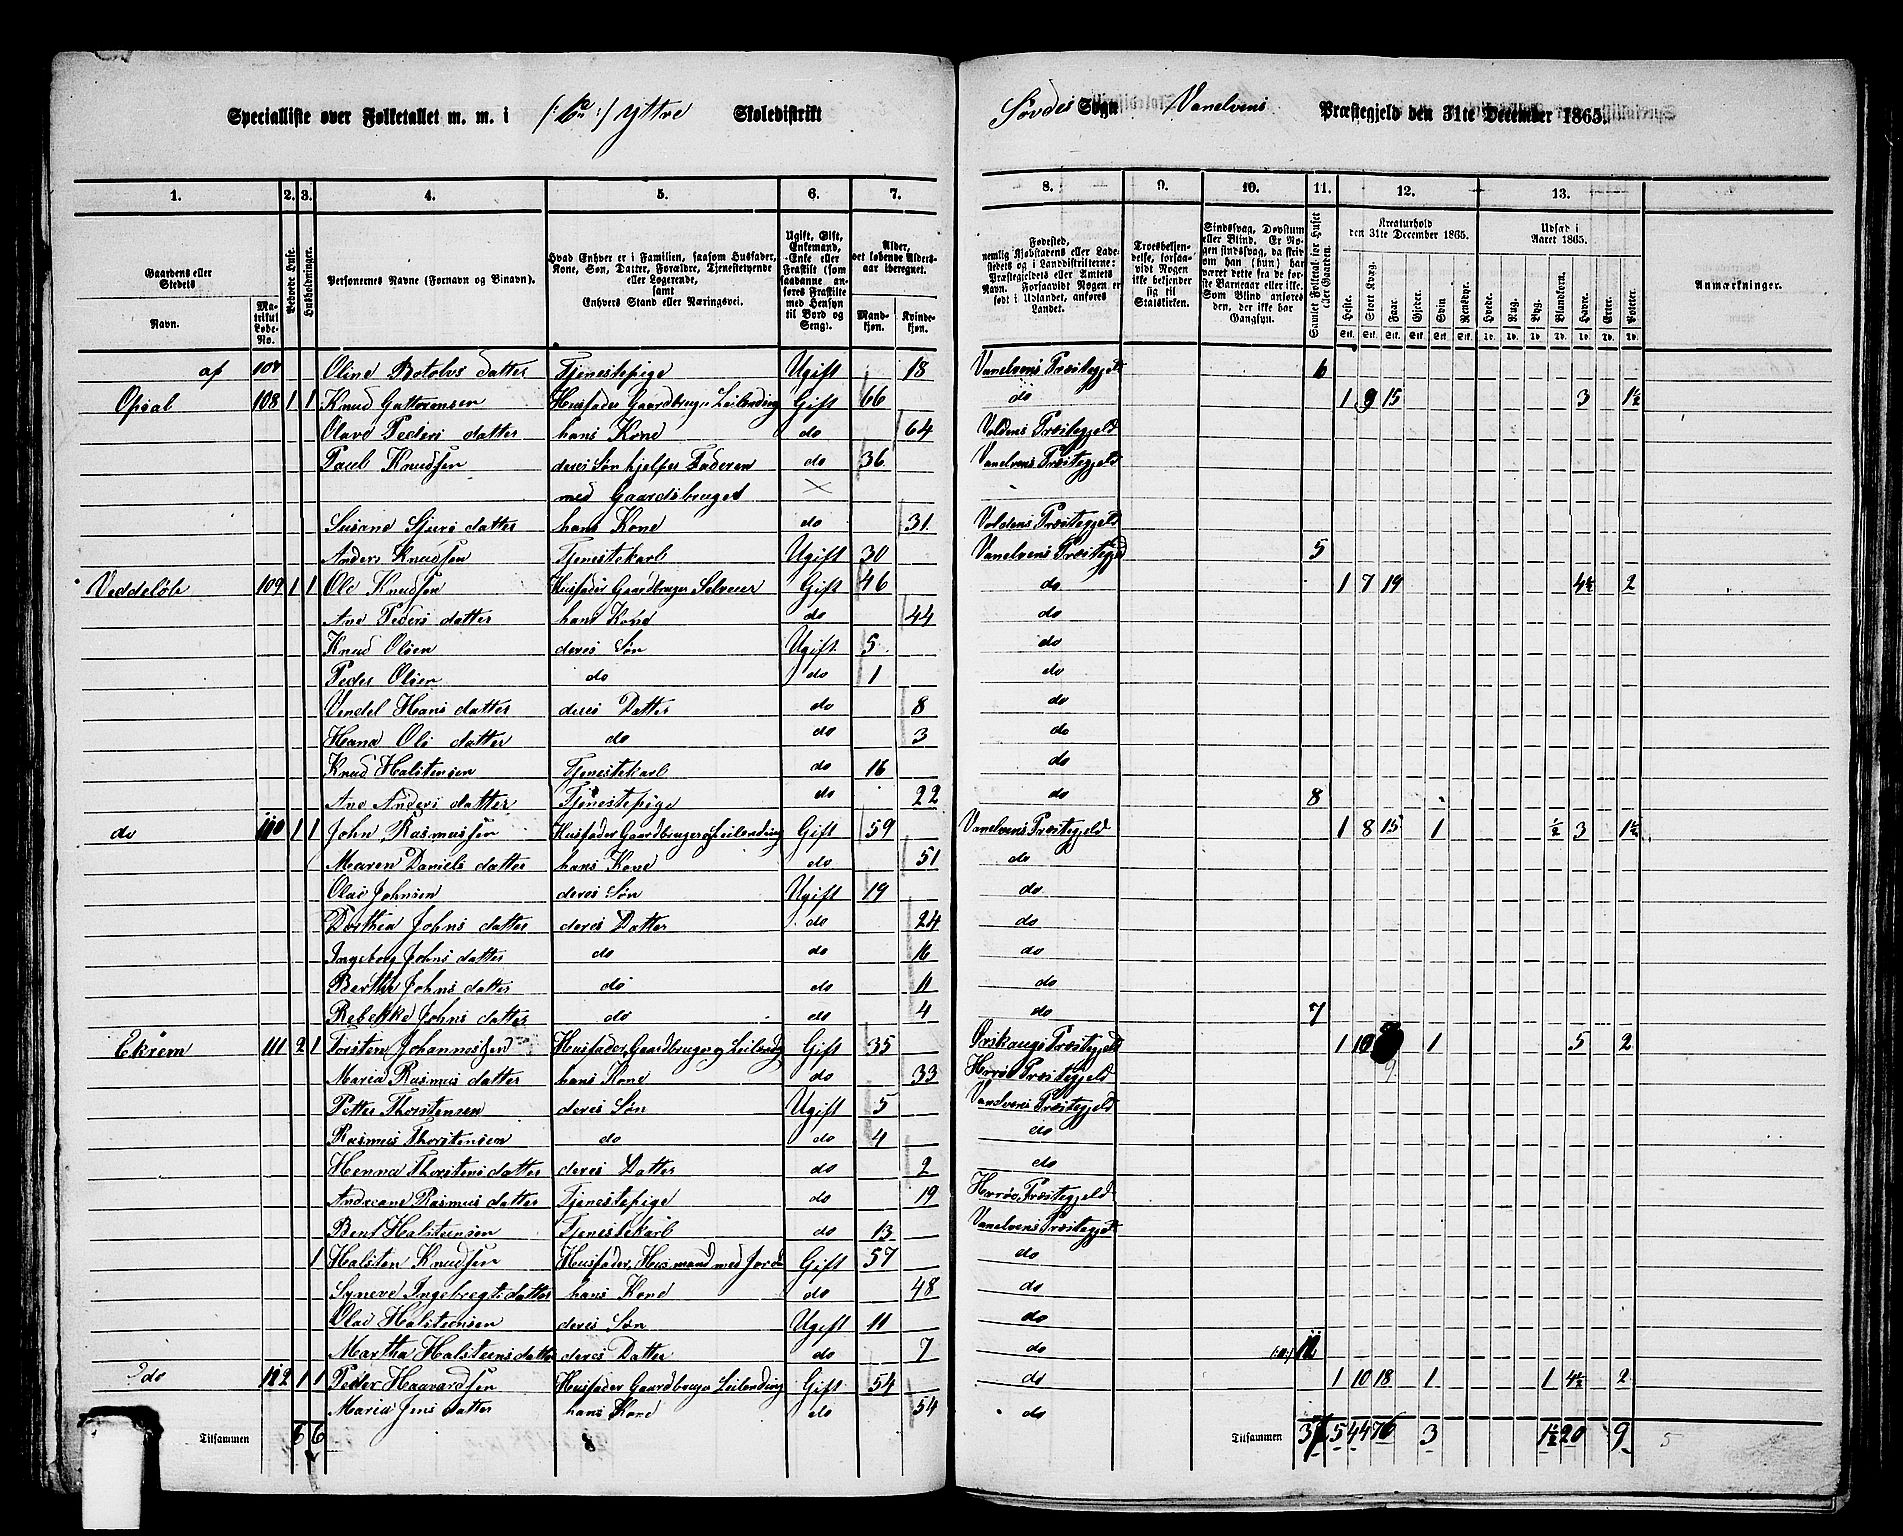 Specialliste over Folketallet m. m. i (: 6te :) yttre Skoledistrikt Søvdes Sogn Vanelvens Præstegjeld den 31te December 1865.
1. 2. 3. 4. 5. 6. 7. 8. 9. 10. 11. 12. 13.
Gaardens eller Stedets Navn. Matrikul Løbe-No. Beboede Huse. Husholdninger. Personernes Navne (Fornavn og Binavn). Hvad Enhver er i Familien, saasom Husfader, Kone, Søn, Datter, Forældre, Tjenestetyende eller Logerende, samt Enhvers Stand eller Næringsvei. Ugift, Gift, Enkemand, Enke eller Fraskilt (som saadanne anføres Fraskilte med Hensyn til Bord og Seng). Alder, det løbende Aldersaar iberegnet. Mandkjøn. Kvindekjøn.
Fødested, nemlig Kjøbstadens eller Ladestedets og i Landdistrikterne: Præstegjeldets eller Amtets Navn. Forsaavidt Nogen er født i Udlandet, anføres Landet. Troesbekjendelse, forsaavidt Nogen ikke bekjender sig til Statskirken. Sindssvag, Døvstum eller Blind. Er Nogen sindssvag, da skrives om han (hun) har været dette fra de første Barneaar eller ikke. Som Blind anføres den, der ikke har Gangsyn. Samlet Folketal for Huset eller Gaarden. Kreaturhold den 31te December 1865. Heste. Stort Kvæg. Faar. Gjeder. Svin. Rensdyr. Udsæd i Aaret 1865. Hvede. Rug. Byg. Blandkorn. Havre. Erter. Poteter. Anmærkninger.
af 107 Oline Botolvs datter Tjenestepige Ugift 18 Vanelvens Præstegjeld 6
Opsal 108 1 1 Knud Guttormsen Husfader Gaardbruger Leilending Gift 66 do 1 9 15 3 1½
Olave Peders datter hans Kone do 64 Voldens Præstegjeld
Paul Knudsen deres Søn hjelper Faderen do 36 Vanelvens Præstegjeld
med Gaardsbruget ×
Susane Sjurs datter hans Kone do 31 Voldens Præstegjeld
Anders Knudsen Tjenestekarl Ugift 30 Vanelvens Præstegjeld 5
Veddeløb 109 1 1 Ole Knudsen Husfader Gaardbruger Selveier Gift 46 do 1 7 19 4½ 2
Ane Peders datter hans Kone do 44 do
Knud Olsen deres Søn Ugift 5 do
Peder Olsen do do 1 do
Vendel Hans datter deres Datter do 8 do
Hana Ols datter do do 3 do
Knud Halstensen Tjenestekarl do 16 do
Ane Anders datter Tjenestepige do 22 do 8
do 110 1 1 John Rasmussen Husfader Gaardbruger og Leilending Gift 59 Vanelvens Præstegjeld 1 8 15 1 ½ 3 1½
Maren Daniels datter hans Kone do 51 do
Olai Johnsen deres Søn Ugift 19 do
Dorthea Johns datter deres Datter do 24 do
Ingeborg Johns datter do do 16 do
Berthe Johns datter do do 11 do
Rebekke Johns datter do do 4 do 7
Ekrem 111 2 1 Torsten Johannessen Husfader, Gaardbruger og Leilending Gift 35 Ørskougs Præstegjeld 1 10 1 5 2
Maria Rasmus datter hans Kone do 33 Herrø Præstegjeld 9
Petter Thorstensen deres Søn Ugift 5 Vanelvens Præstegjeld
Rasmus Thorstensen do do 4 do
Henna Thorstens datter deres Datter do 2 do
Andreane Rasmus datter Tjenestepige do 19 Herrøe Præstegjeld
Bent Halsteensen Tjenestekarl do 13 Vanelvens Præstegjeld
1 Halsten Knudsen Husfader, Husmand med Jord Gift 57 do
Syneve Ingebregts datter hans Kone do 48 do
Olai Halsteensen deres Søn Ugift 11 do
Martha Halsteens datter deres Datter do 7 do
do 112 1 1 Peder Haavardsen Husfader Gaardbruger Leilending Gift 54 do 1 10 18 1 1 4½ 2
Maria Jens datter hans Kone do 54 do
Tilsammen 6 6 8 Tilsammen 37 5 44 76 3 1½ 20 9 5